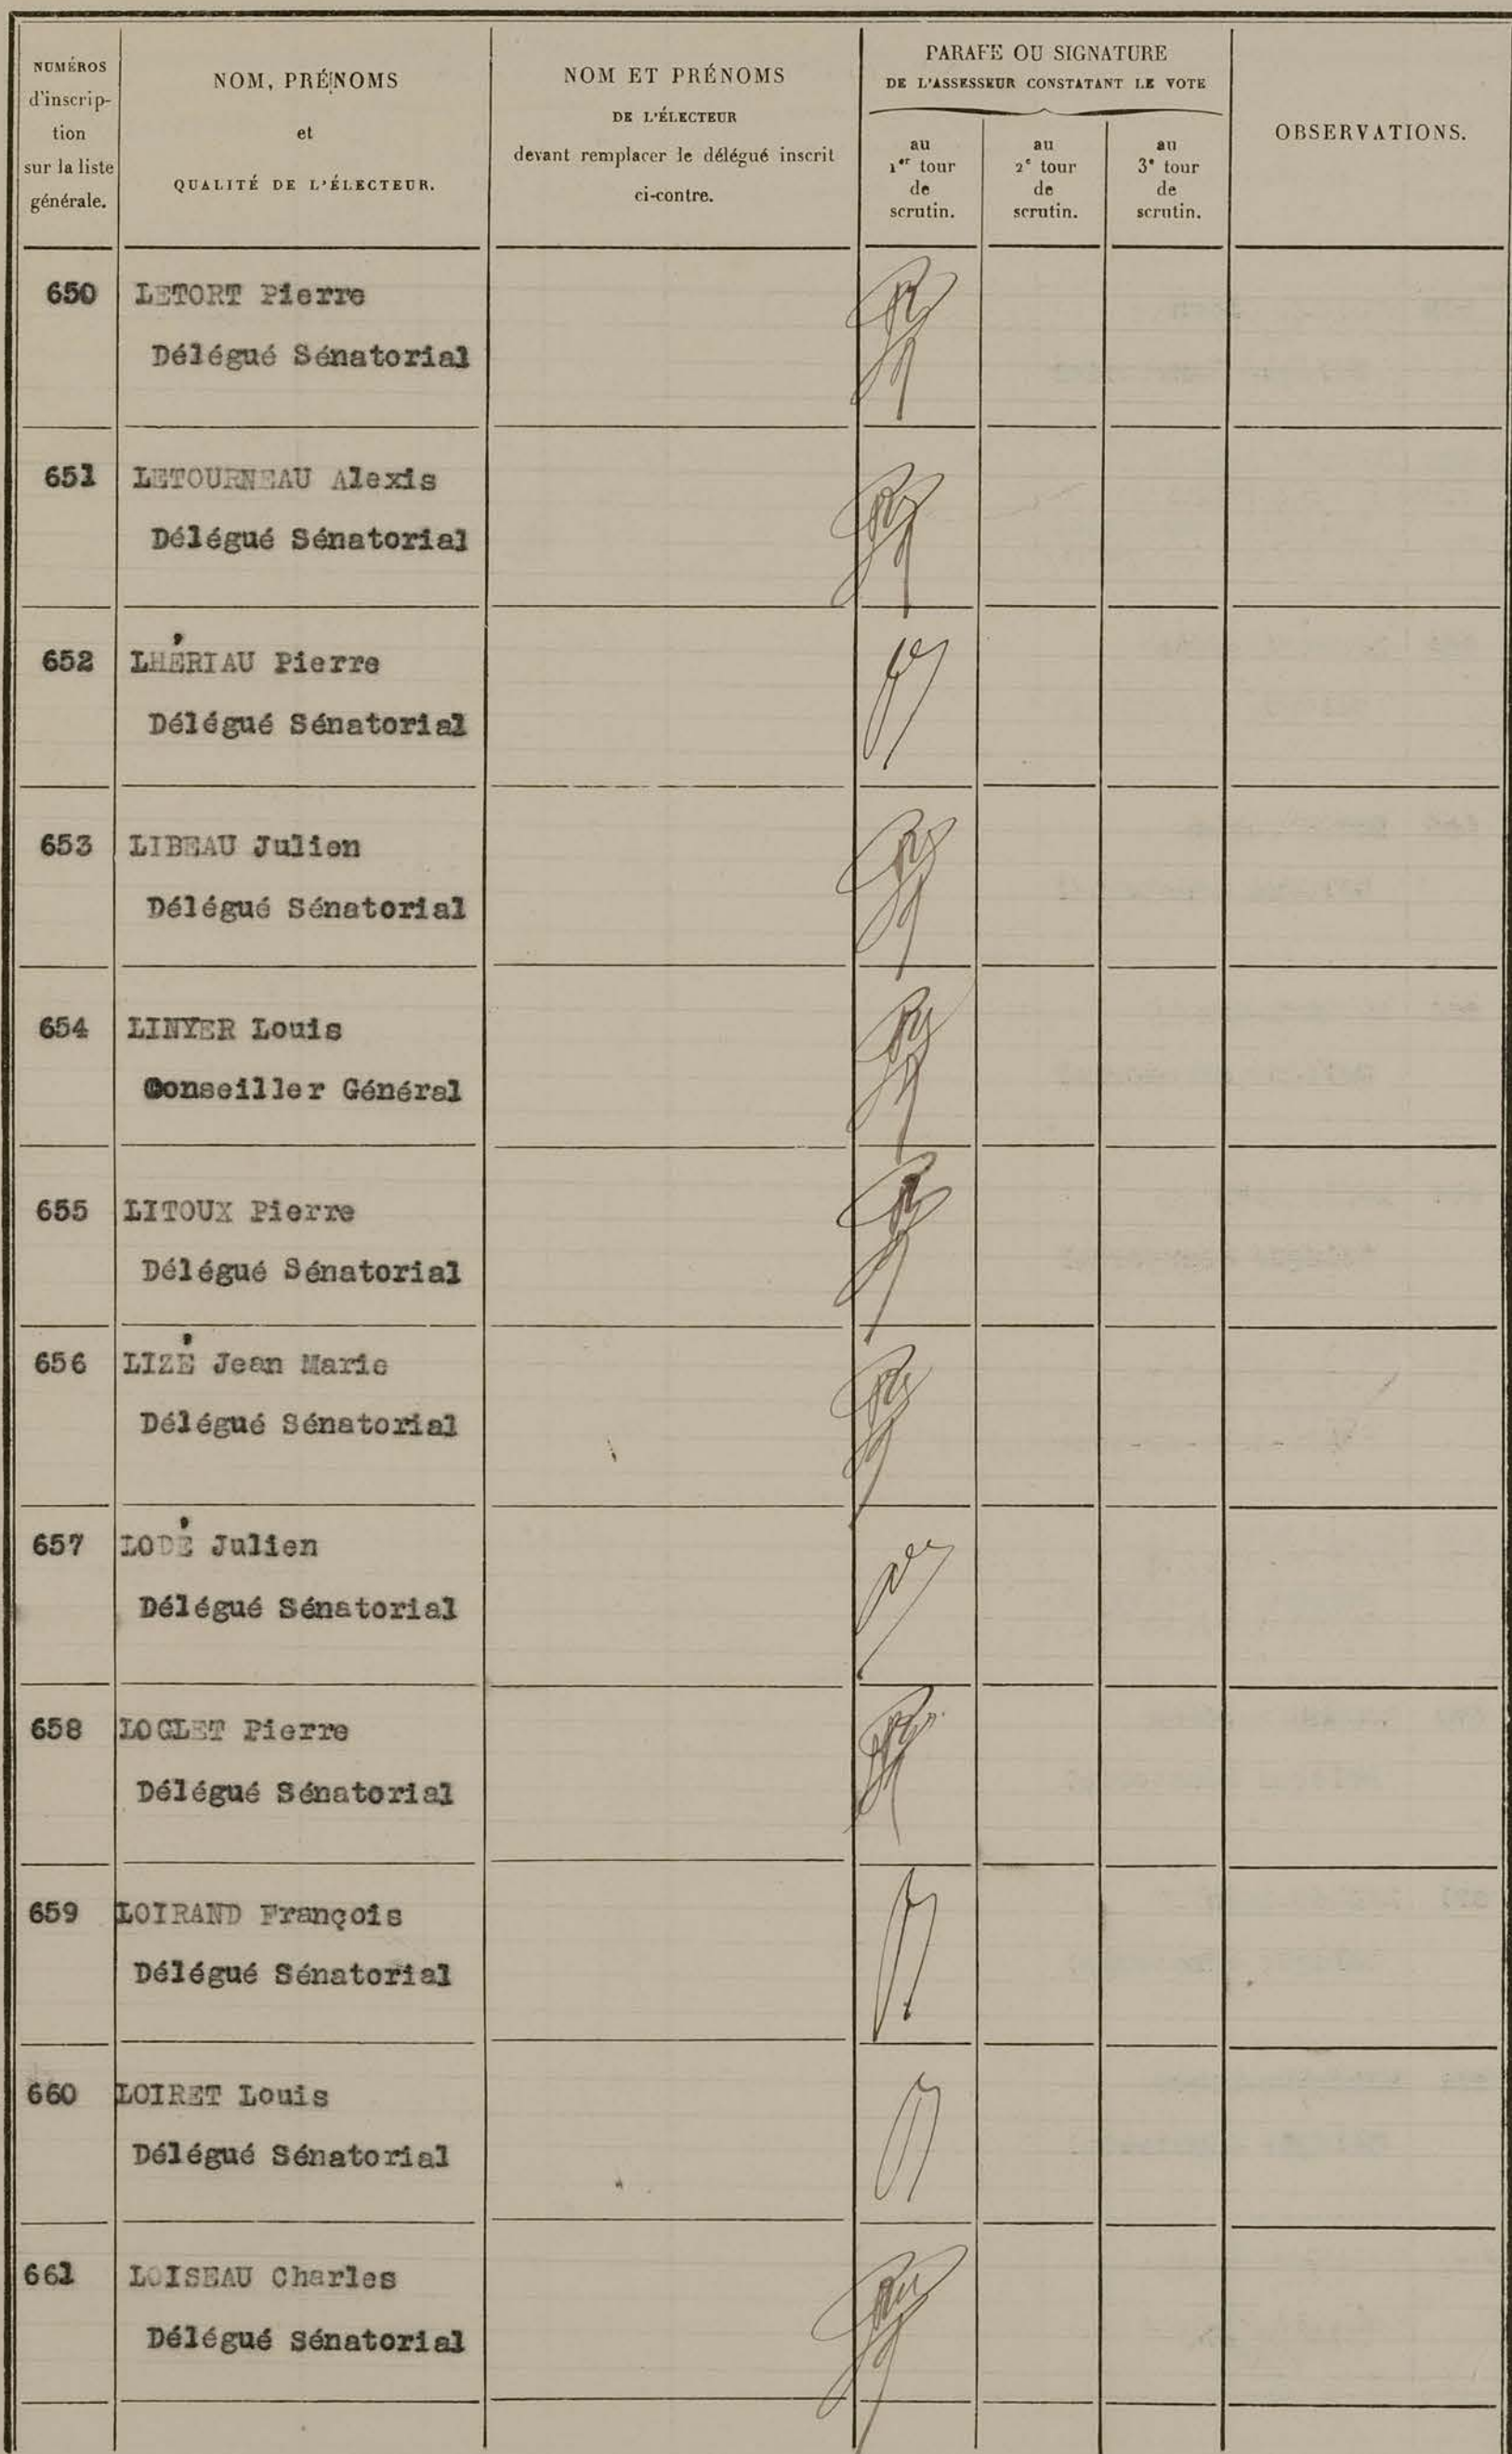 NUMÉROS
d'inscrip-
tion
sur la liste
générale.
NOM, PRÉNOMS
et
QUALITÉ DE L'ÉLECTEUR.
NOM ET PRÉNOMS
DE L'ÉLECTEUR
devant remplacer le délégué inscrit
ci-contre.
PARAFE OU SIGNATURE
DE L'ASSESSEUR CONSTATANT LE VOTE
au
1er tour
de
scrutin.
au
2e tour
de
scrutin.
au
3e tour
de
scrutin.
OBSERVATIONS.
650 LETORT Pierre
Délégué Sénatorial
651 LETOURNEAU Alexis
Délégué Sénatorial
652 LHÉRIAU Pierre
Délégué Sénatorial
653 LIBEAU Julien
Délégué Sénatorial
654 LINYER Louis
Conseiller Général
655 LITOUX Pierre
Délégué Sénatorial
656 LIZÉ Jean Marie
Délégué Sénatorial
657 LODÉ Julien
Délégué Sénatorial
658 LOGLET Pierre
Délégué Sénatorial
659 LOIRAND François
Délégué Sénatorial
660 LOIRET Louis
Délégué Sénatorial
661 LOISEAU Charles
Délégué Sénatorial